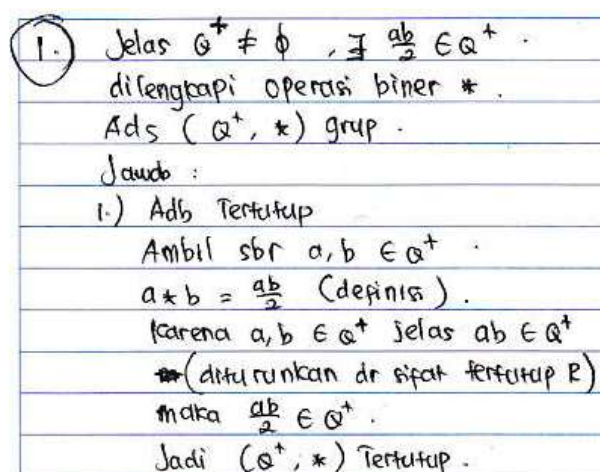 1. Jelas Q⁺ ≠ ϕ , ∃ ab/2 ∈ Q⁺ .
dilengkapi operasi biner * .
Ads ( Q⁺, * ) grup .
Jawab :
1.) Adb Tertutup
Ambil sbr a, b ∈ Q⁺ .
a * b = ab/2 (definisi) .
Karena a, b ∈ Q⁺ jelas ab ∈ Q⁺
(diturunkan dr sifat tertutup R)
maka ab/2 ∈ Q⁺ .
Jadi (Q⁺, *) Tertutup .